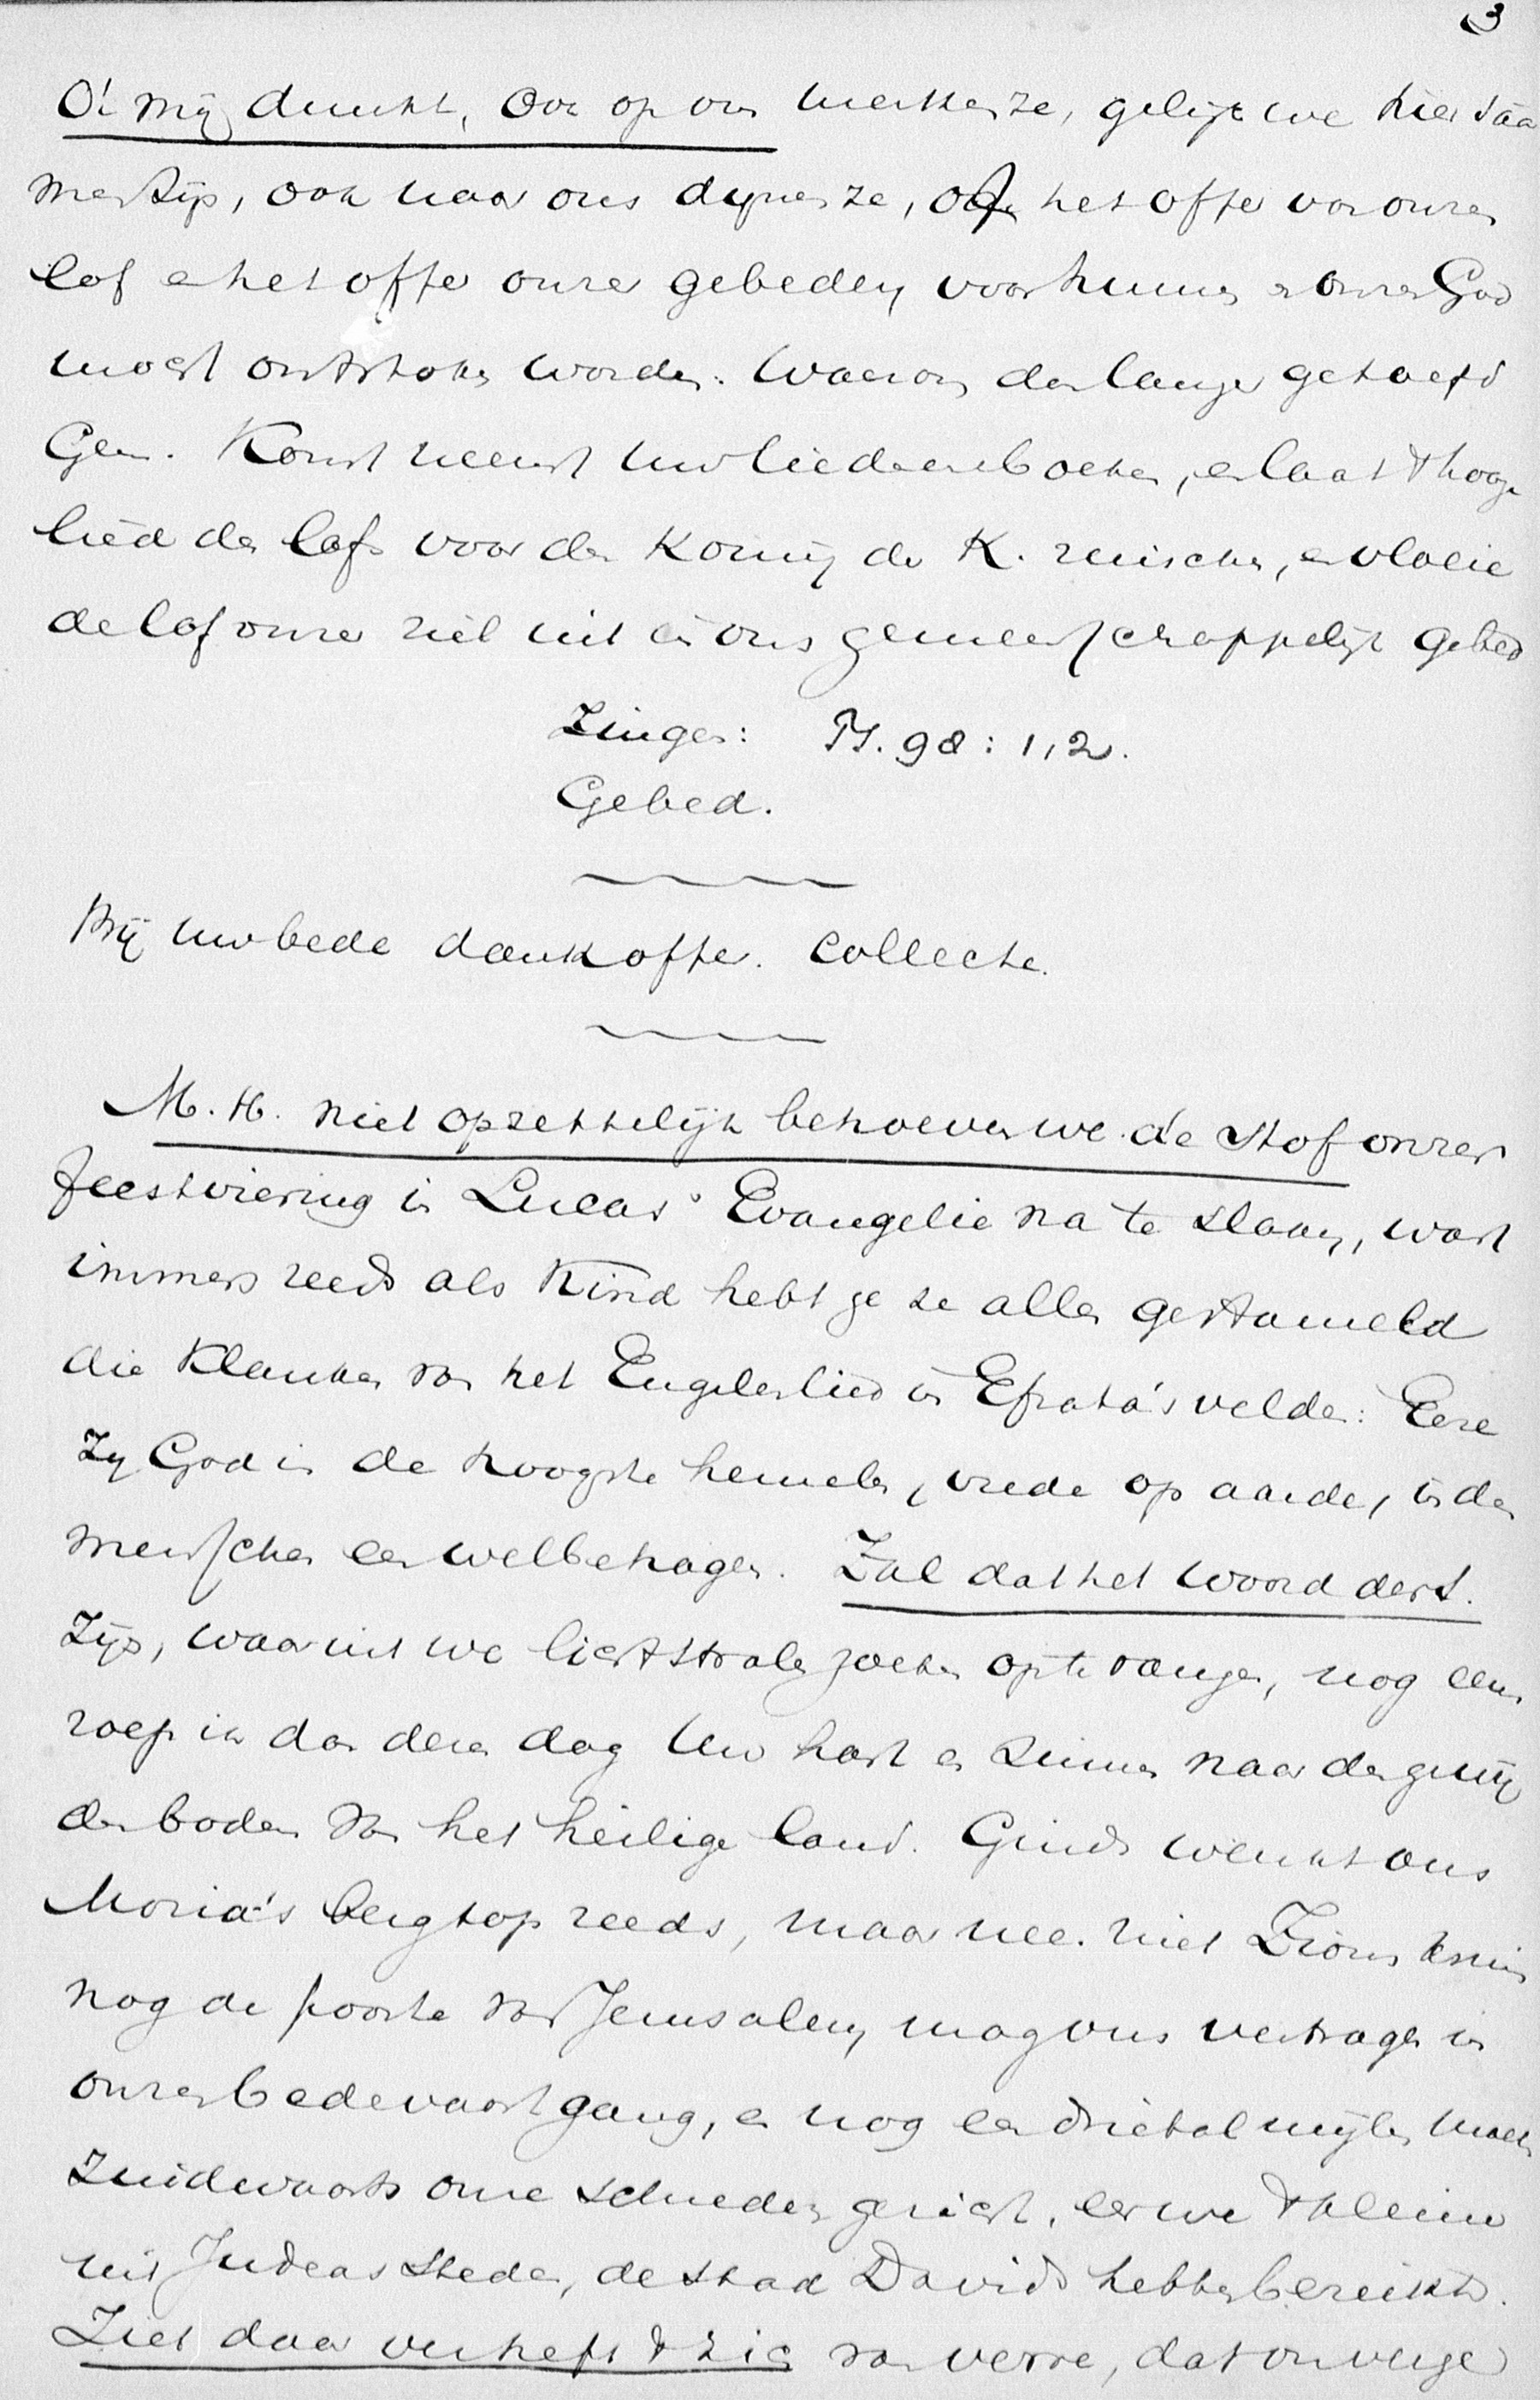 3
O! mij dunkt, ook op ons merken ze, gelijk we hier sáa
men zijn, ook naar ons dringen ze, of het offer van onzen
lof en het offer onzer gebeden voor hunnen en onzen God
moest ontstoken worden. Waarom dan langer getoefd
Gem. Komt neemt uw liederenboeken, en laat 't hooge
lied des lofs voor den Koning der K. ruischen, en vloeie
de lof onzer ziel uit in ons gemeenschappelijk gebed
Zingen: Ps. 98 : 1, 2.
Gebed.
Bij uw bede dankoffer. Collecte.
M. H. niet opzettelijk behoeven we de stof onzer
feestviering in Lucas' Evangelie na te slaan, want
immers reeds als kind hebt ge ze allen gestameld
die klanken van het Engelenlied in Efrata's velden: Eere
zij God in de hoogste hemelen, vrede op aarde, in de
menschen een welbehagen. Zal dat het woord dezes
zijn, waaruit we lichtstralen zoeken op te vangen, nog eens
roep ik dan dezen dag Uw hart en zinnen naar den gewij
den bodem van het heilige land. Ginds wenkt ons
Moria's bergtop reeds, maar nee. niet Zions kruin
nog de poorte van Jerusalem, mag ons vertragen in
onzen bedevaartgang, en nog een drietal mijlen moeten
Zuidwaarts onze schreden gericht, eer we 't kleine
uit Judeas steden, de stad Davids hebben bereikt.
Ziet daar verheft 't zich van verre, dat onvergee